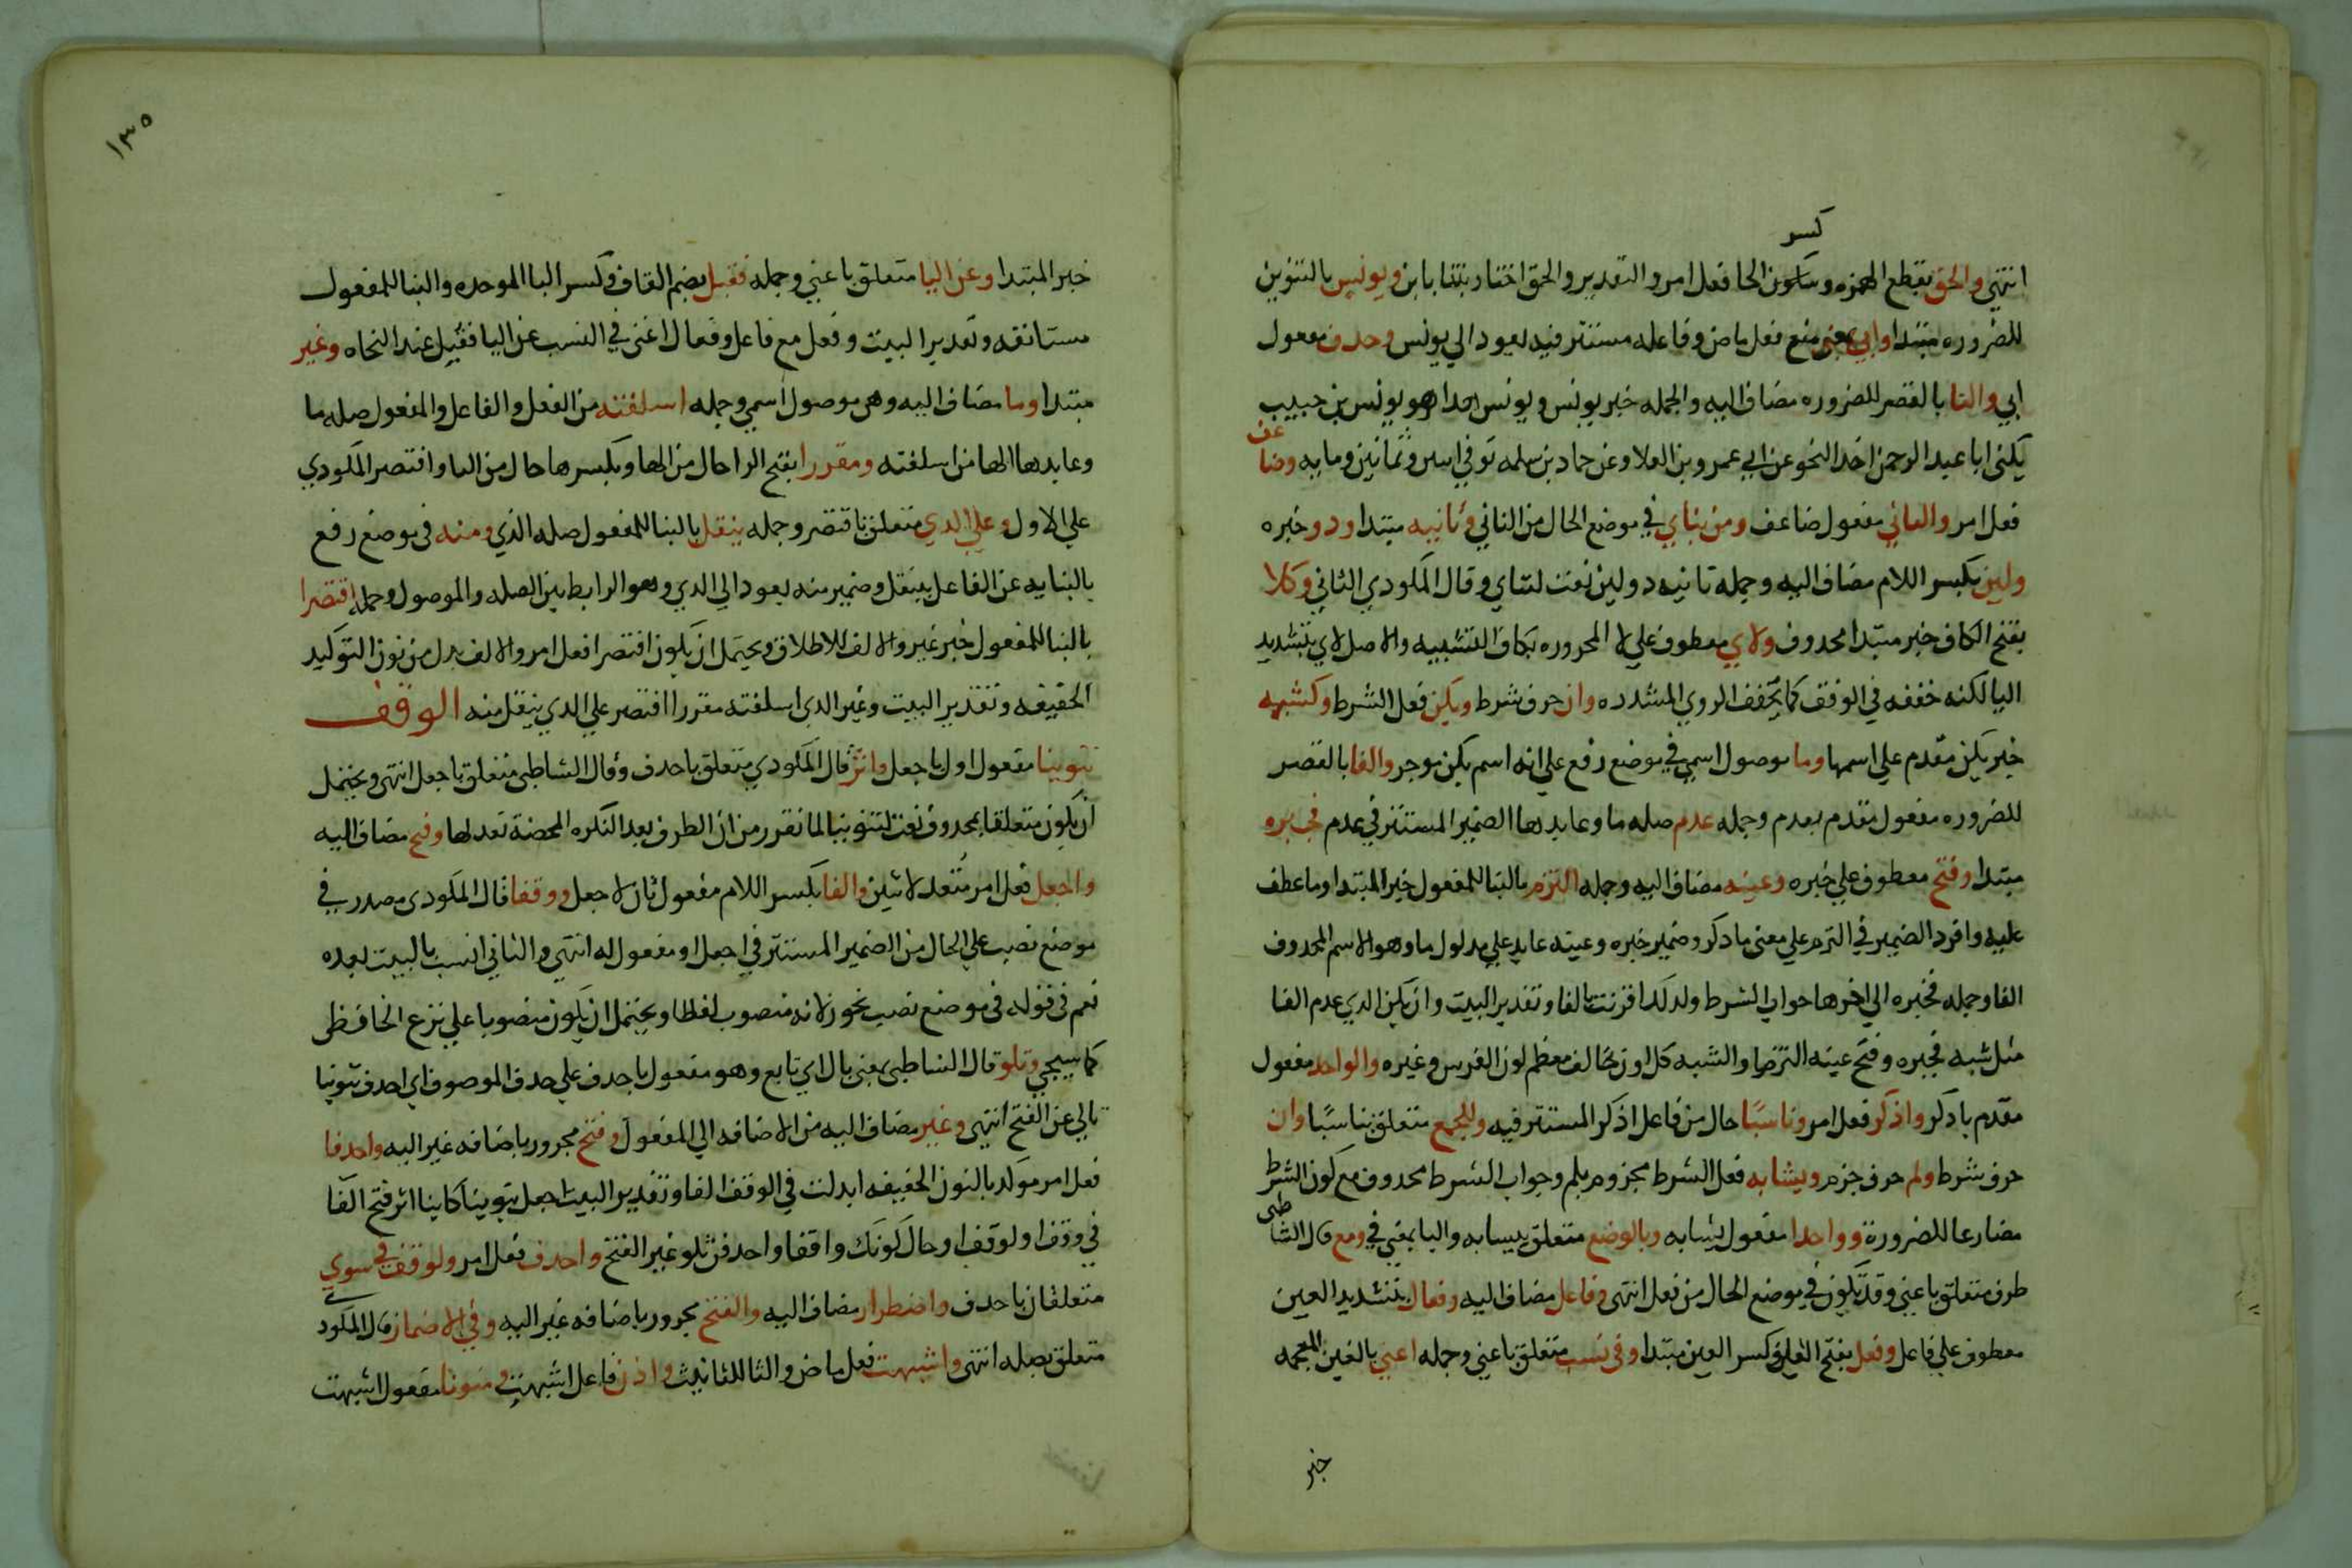 كسر
انتهى والحق بقطع الهمزه وسكون الحا فعل امر والتقدير والحق اختا ربنتا بابن ويونس بالتنوين
للضروره مبتدا وابي بمعنى منع فعل ماض وفاعله مستتر فيه يعود الي يونس وحدف مفعول
ابي والتا بالقصر للضروره مضاف اليه والجمله خبر يونس ويونس هدا هو يونس بن حبيب
يكنى ابا عبد الرحمن اخد النحو عن ابي عمرو بن العلا وعن حماد بن سلمه توفي سن وثمانين ومايه وضاعف
فعل امر والثاني مفعول ضاعف ومن ثناي في موضع الحال من الثاني وثانيه مبتدا ودو خبره
ولين بكسر اللام مضاف اليه وجمله ثانيه دو لين نعت لثناي وقال المكودي الثاني وكلا
بفتح الكاف خبر مبتدا محدوف ولاي معطوف علي لا المجروره بكاف التشبيه والاصل لاي بتشديد
اليا لكنه خففه في الوقف كما يخفف الروي المشدده وان حرف شرط ويكن فعل الشرط وكشيه
خبر يكن مقدم علي اسمها وما موصول اسمي في موضع رفع علي انه اسم يكن موخر والفا بالقصر
للضروره مفعول مقدم بعدم وجمله عدم صله ما وعايدها الضمير المستتر في عدم فجبره
مبتدا وفتح معطوف علي خبره وعينه مضاف اليه وجمله التزم بالبنا للمفعول خبر المبتدا وما عطف
عليه وافرد الضمير في التزم علي معنى ما دكر وضمير خبره وعينه عايد علي مدلول ما وهو الاسم المحدوف
الفا وجمله فجبره الي اخرها جواب الشرط ولدلك اقترنت بالفا وتقدير البيت وان يكن الدي عدم الفا
مثل شيه فجبره وفتح عينه التزما والشيه كل لون يخالف معظم لون الفرس وغيره والواحد مفعول
مقدم بادكر واذكر فعل امر وناسبًا حال من فاعل اذكر المستتر فيه وللجمع متعلق بناسبًا وان
حرف شرط ولم حرف جزم ويشابه فعل الشرط مجزوم بلم وجواب الشرط محدوف مع كون الشرط
مضارعا للضرورة وواحدا مفعول يشابه وبالوضع متعلق بيشابه والبا بمعنى في ومع قال الشاطبى
ظرف متعلق باغنى وقد يكون في موضع الحال من فعل انتهى وفاعل مضاف اليه وفعال بتشديد العين
معطوف علي فاعل وفعل بفتح الفا وكسر العين مبتدا وفى نسب متعلق باغنى وجمله اغنى بالغين المعجمه
خبر
١٣٥
خبر المبتدا وعن اليا متعلق باغنى وجمله فقبل بضم القاف وكسر البا الموحده والبنا للمفعول
مستانفه وتقدير البيت وفعل مع فاعل وفعال اغنى في النسب عن اليا فقبل عند النحاه وغير
مبتدا وما مضاف اليه وهى موصول اسمي وجمله اسلفته من الفعل والفاعل والمفعول صله ما
وعايدها الها من اسلفته ومقررا بفتح الرا حال من الها وبكسرها حال من التا واقتصر المكودي
علي الاول وعلي الدي متعلق باقتصر وجمله ينقل بالبنا للمفعول صله الذي ومنه فى موضع رفع
بالنيابه عن الفاعل بينقل وضمير منه يعود الي الدي وهو الرابط بين الصله والموصول وجمله اقتصرا
بالبنا للمفعول خبر غير والالف للاطلاق ويحتمل ان يكون اقتصرا فعل امر والالف بدل من نون التوكيد
الخفيفه وتقدير البيت وغير الدي اسلفته مقررا اقتصر علي الدي ينقل منه الوقف
تنوينا مفعول اول باجعل واثر قال المكودي متعلق باحدف وقال الشاطبى متعلق باجعل انتهى ويحتمل
ان يكون متعلقا بمحدوف نعت لتنوينا لما تقرر من ان الظرف بعد النكره المحضة نعت لها وفتح مضاف اليه
واجعل فعل امر متعد لاثنين والفا بكسر اللام مفعول ثان لاجعل ووقفا قال المكودى مصدر في
موضع نصب علي الحال من الضمير المستتر في اجعل او مفعول له انتهى والثاني انسب بالبيت بعده
نعم فى قوله فى موضع نصب تجوز لانه منصوب لفظا ويحتمل ان يكون منصوبا علي نزع الخافظ
كما سيجي وتلو قال الشاطبى بمعنى تال اي تابع وهو مفعول باحدف علي حدف الموصوف اي احدف تنوينا
تالي عن الفتح انتهى وغير مضاف اليه من الاضافه الي المفعول وفتح مجرور باضافه غير اليه واحدفا
فعل امر موكد بالنون الخفيفه ابدلت في الوقف الفا وتقدير البيت اجعل تنوينا كاينا اثر فتح الفا
في وقف او لوقف او حال كونك واقفا واحدفن تلو غير الفتح واحدف فعل امر ولوقف في سوي
متعلقان باحدف واضطرار مضاف اليه والفتح مجرور باضافه غير اليه وفي الاضمار قال المكودي
متعلق بصله انتهى واشبهت فعل ماض والتا للتانيث واذن فاعل اشبهت ومنونا مفعول اشبهت